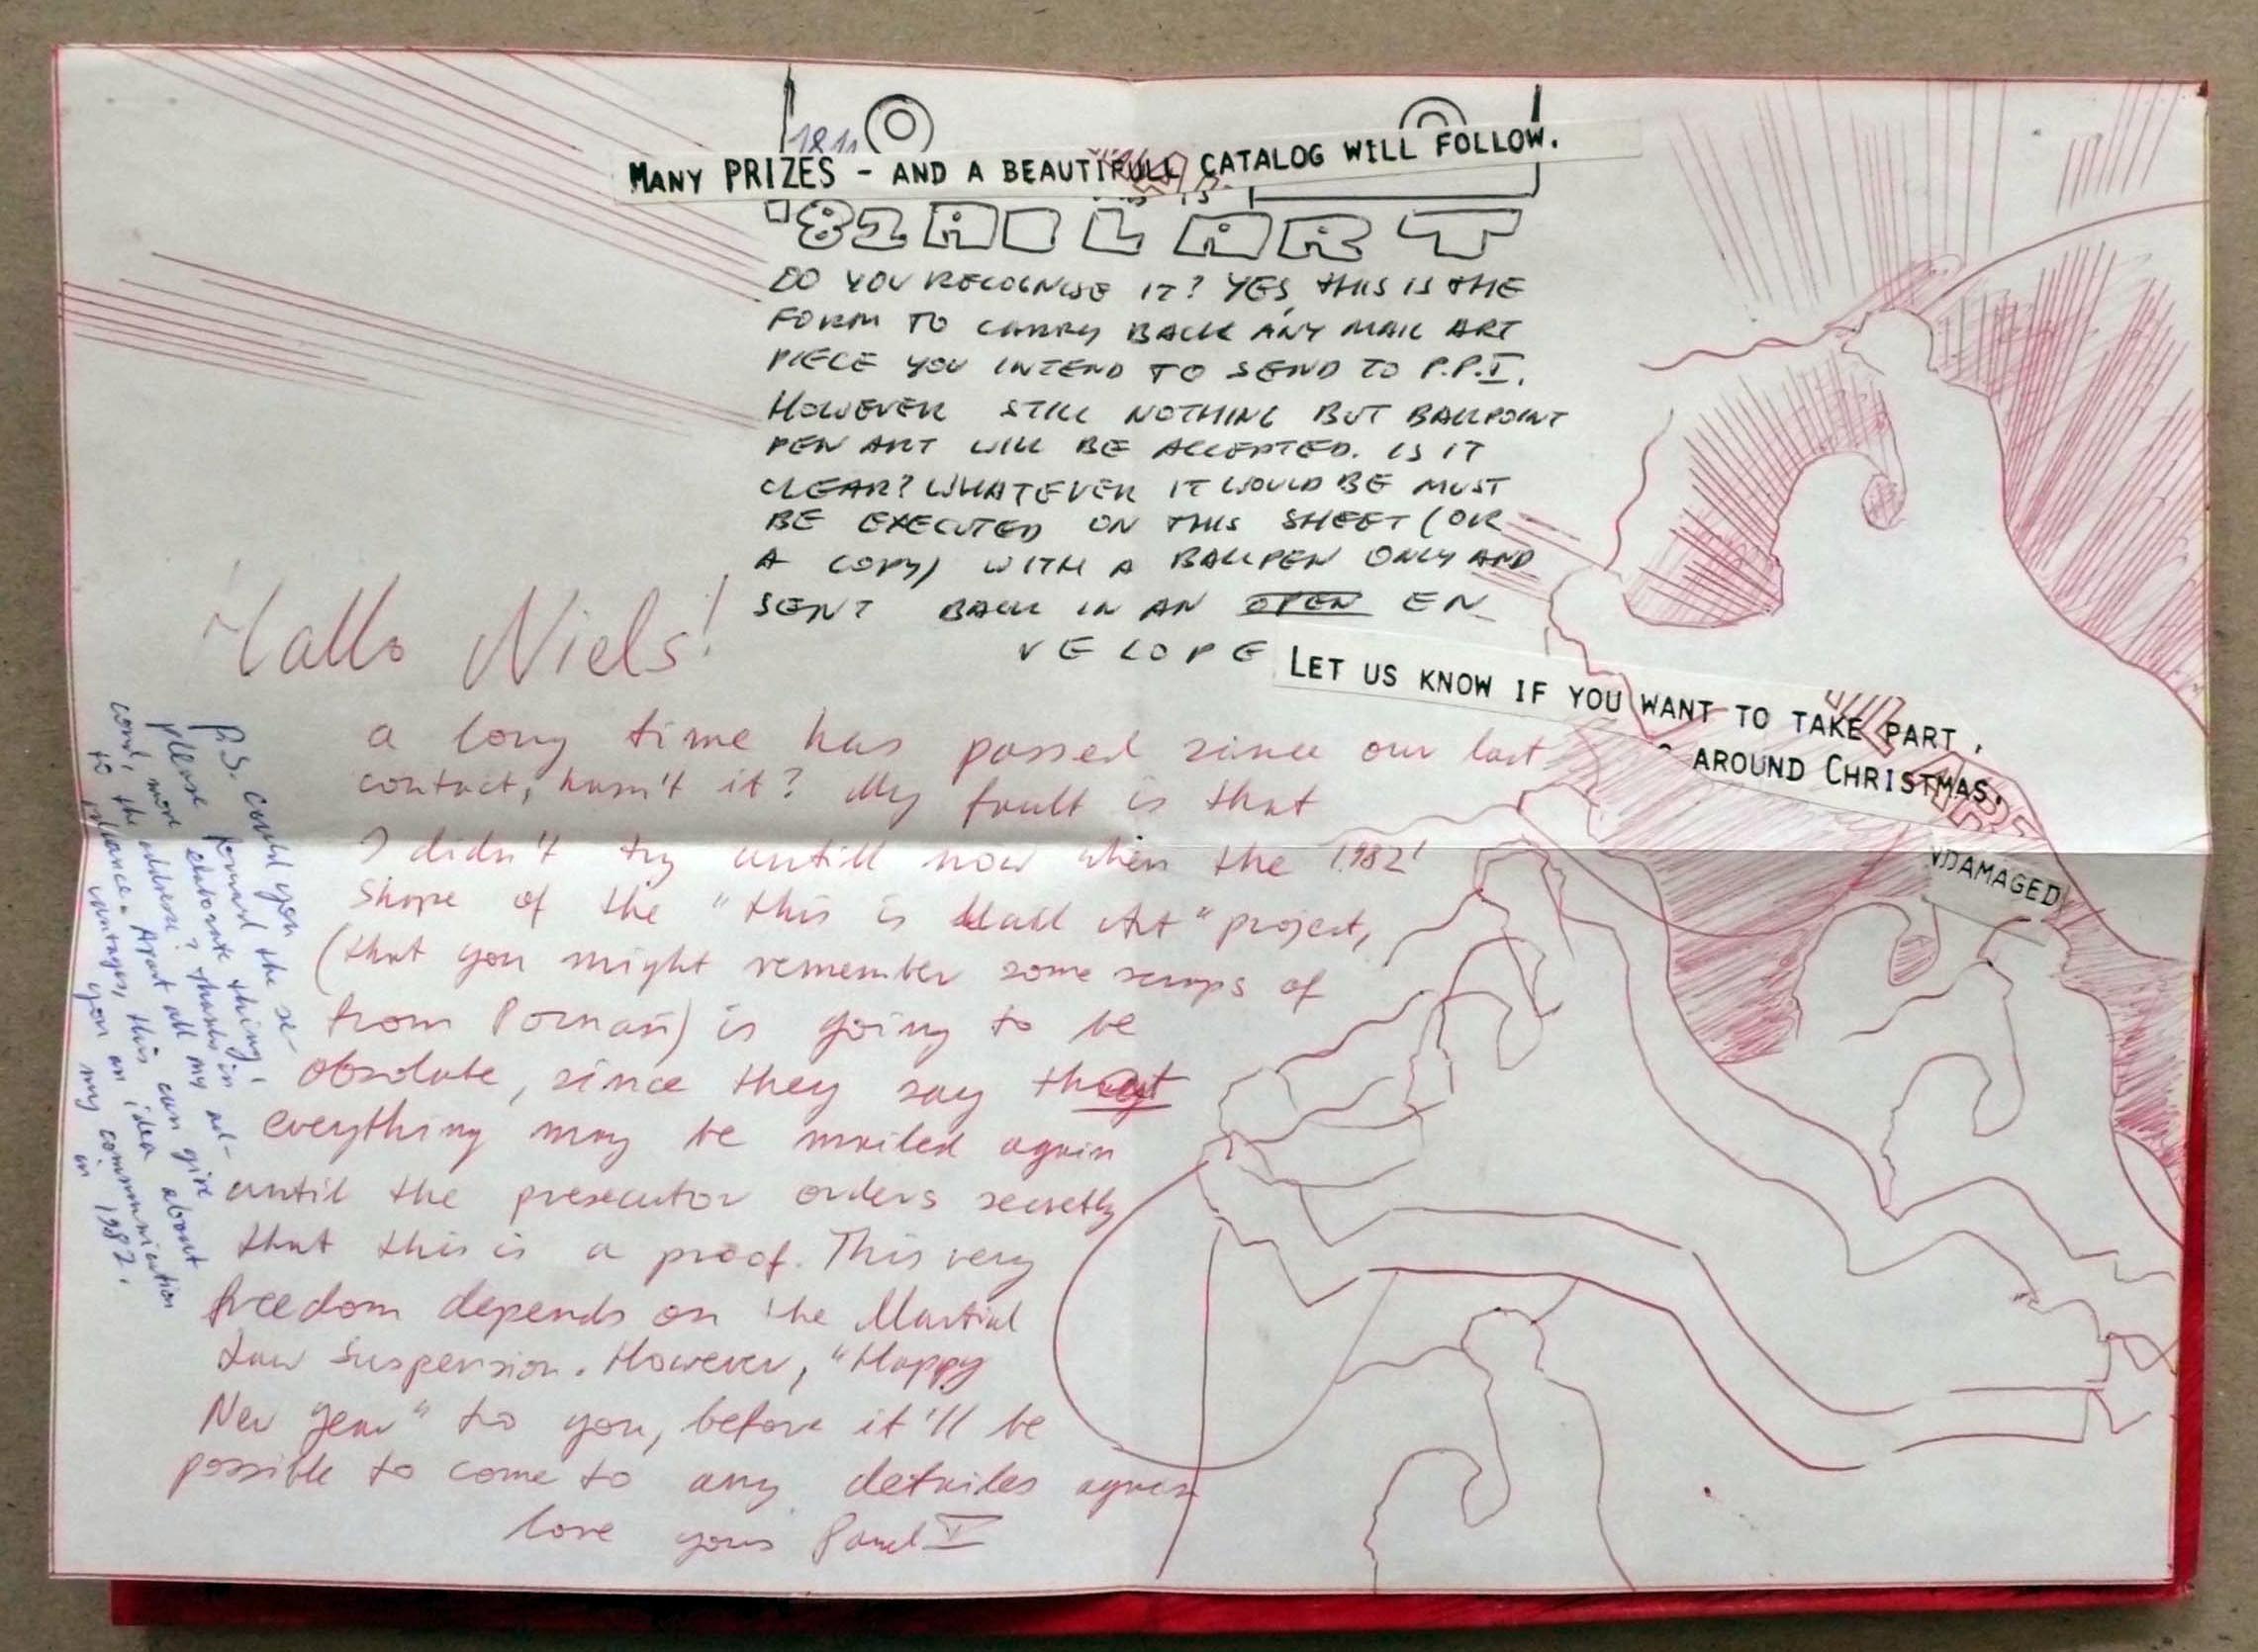 18.11
MANY PRIZES - AND A BEAUTIFULL CATALOG WILL FOLLOW.
'82AIL ART
DO YOU RECOGNISE IT? YES, THIS IS THE
FORM TO CARRY BACK ANY MAIL ART
PIECE YOU INTEND TO SEND TO P.P.I.
HOWEVER STILL NOTHING BUT BALLPOINT
PEN ART WILL BE ACCEPTED. IS IT
CLEAR? WHATEVER IT WOULD BE MUST
BE EXECUTED ON THIS SHEET (OR
A COPY) WITH A BALLPEN ONLY AND
SENT BACK IN AN OPEN EN-
VELOPE
LET US KNOW IF YOU WANT TO TAKE PART,
AROUND CHRISTMAS.
DAMAGED
Hallo Niels!
a long time has passed since our last
contact, hasn't it? My fault is that
I didn't try untill now when the 1982'
shape of the "this is Mail Art" project,
(that you might remember some scraps of
from Poznań) is going to be
obsolute, since they say that
everything may be mailed again
until the prosecutor orders secretly
that this is a proof. This very
freedom depends on the Martial
Law Suspension. However, "Happy
New Year" to you, before it'll be
possible to come to any detailes again
love yours Pawel V
P.S. could you
please forward the se-
cond, more elaborate thing,
to the adresse? Thanks in ad-
vance. Apart all my
vantages, this can give
you an idea about
my communication
in 1982.